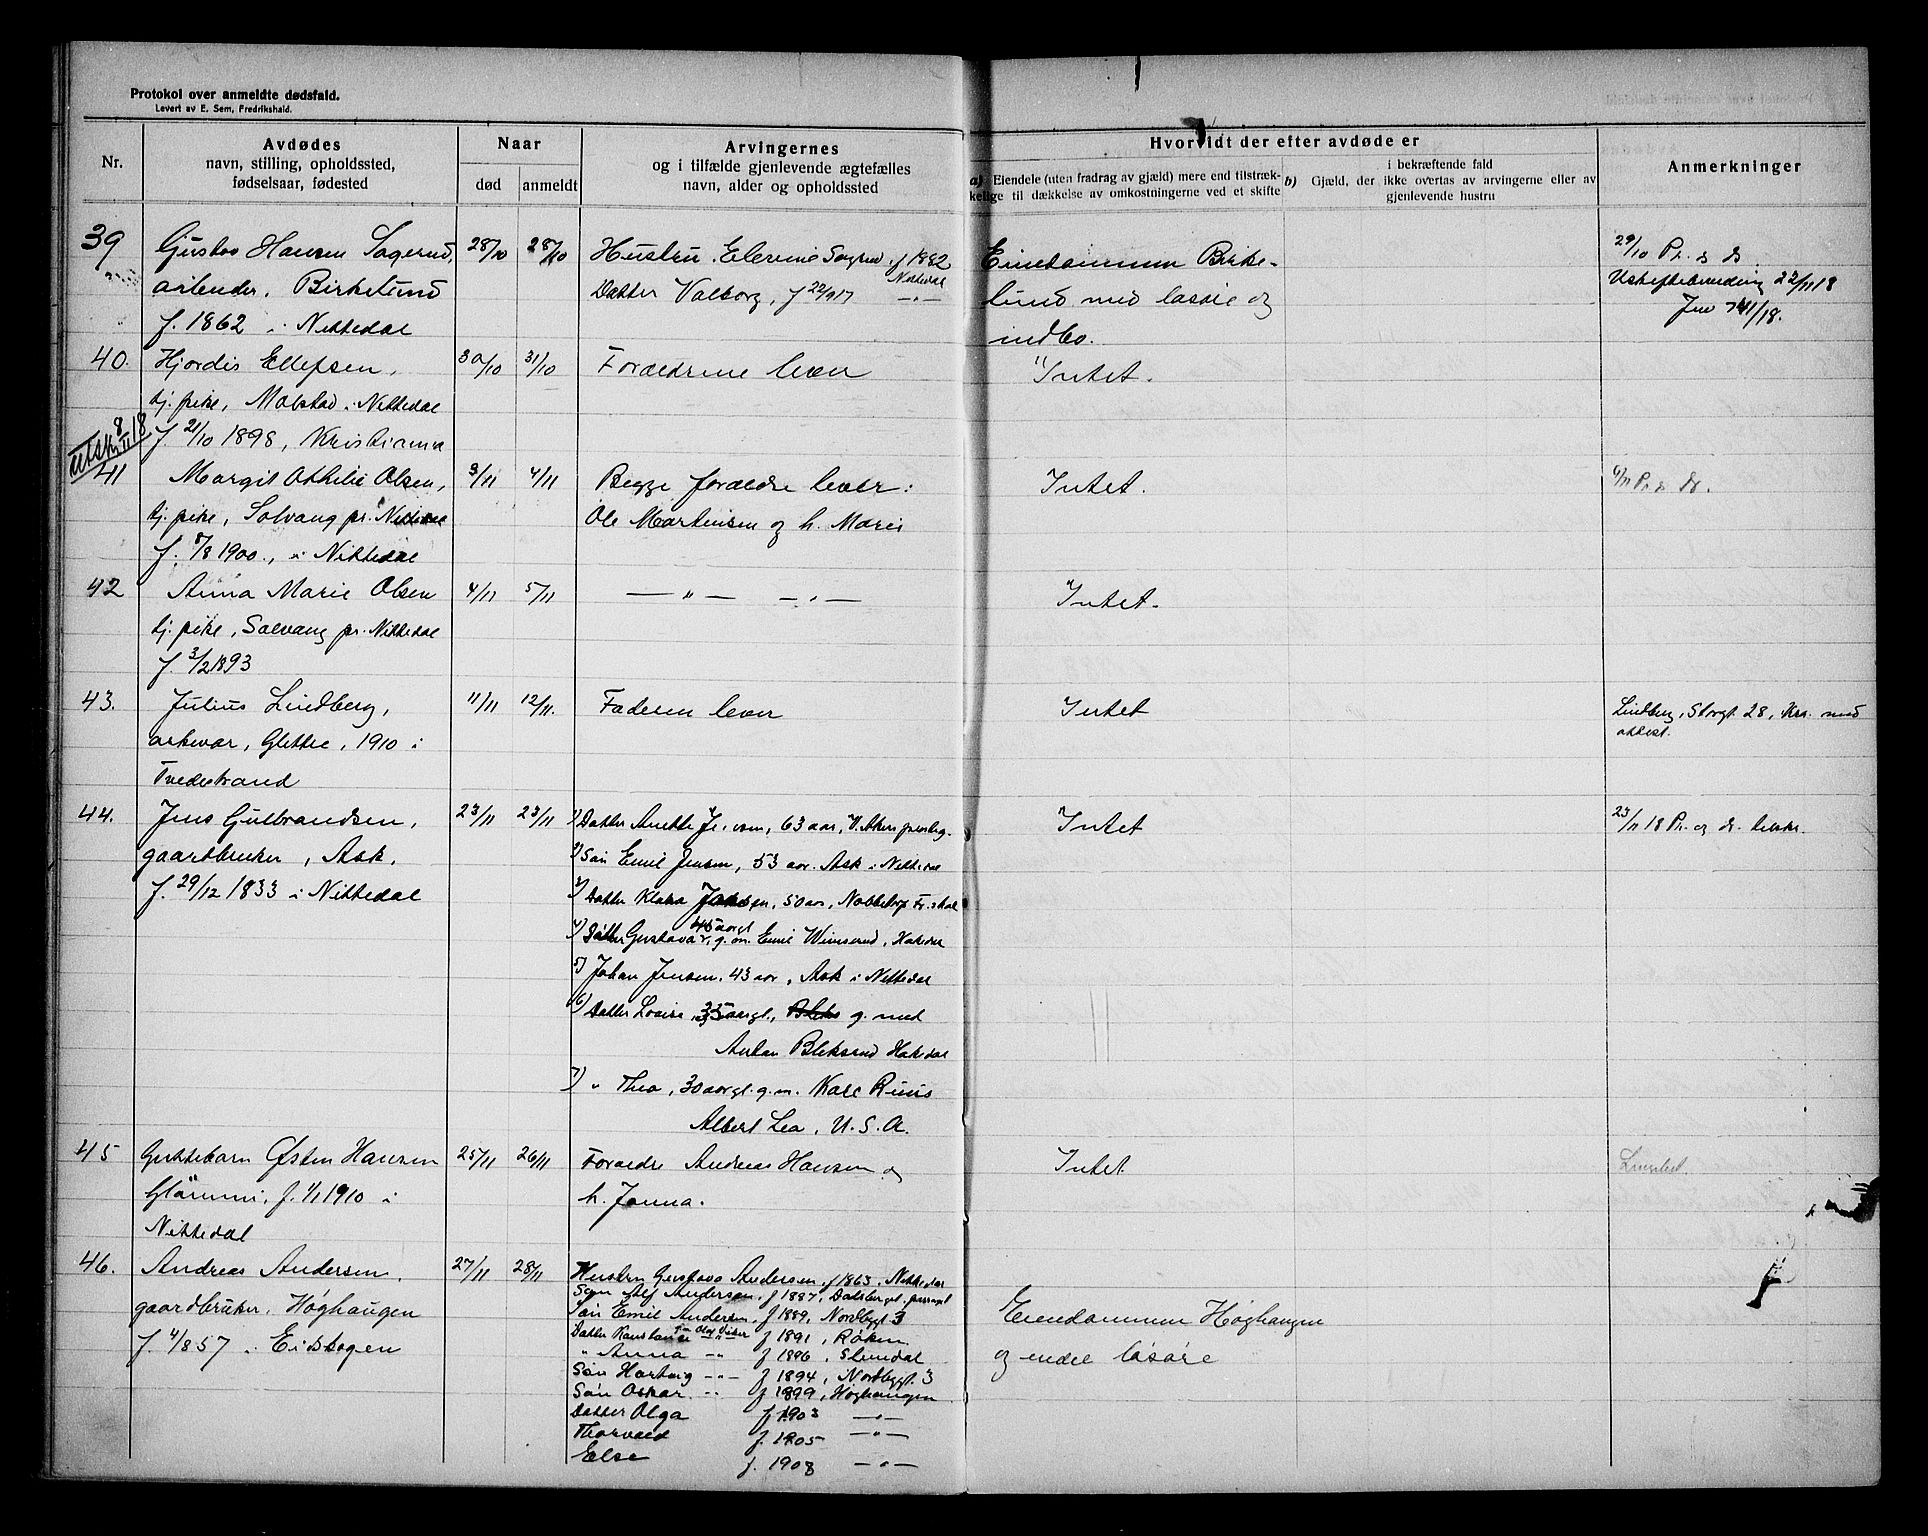 Protokol over anmeldte dødsfald.
Levert av E. Sem, Fredrikshald.
Nr.
Avdødes
navn, stilling, opholdssted,
fødselsaar, fødested
Naar
død
anmeldt
Arvingernes
og i tilfælde gjenlevende ægtefælles
navn, alder og opholdssted
Hvorvidt der efter avdøde er
a) Eiendele (uten fradrag av gjæld) mere end tilstræk-
kelige til dækkelse av omkostningerne ved et skifte
b) i bekræftende fald
Gjæld, der ikke overtas av arvingerne eller av
gjenlevende hustru
Anmerkninger
39
Gustav Hansen Sagerud,
arbender, Birkelund
f. 1862 i Nittedal
28/10
28/10
Hustru Elevine Sagerud f 1882
Nittedal
Datter Valborg, f 22/9 17 —"—
Eiendommen Birke-
lund med løsøre og
indbo.
29/10 Pr. s ds.
22/11 18
Jnr 741/18.
40.
Hjordis Ellefsen,
tj. pike, Molstad i Nittedal
f 21/10 1898, Kristiania
30/10
31/10
Forældrene lever
Intet.
Utskr. 8/11 18
41
Margit Othilie Olsen,
tj. pike, Solvang pr. Nittedal
f. 8/8 1900, i Nittedal
3/11
4/11
Begge forældre lever:
Ole Martinsen og h. Marie
Intet.
6/11 Pr. s ds.
42
Anna Marie Olsen
tj. pike, Solvang pr. Nittedal
f. 3/2 1893
4/11
5/11
—"— —"—
Intet.
43.
Julius Lindberg,
Glittre, 1910 i
Tvedestrand
11/11
12/11.
Faderen lever
Intet
Lindberg, Storgt 28, Kra. med
attest.
44.
Jens Gulbrandsen,
gaardbruker, Ask,
f. 29/12 1833 i Nittedal
23/11
23/11
1) Datter Anette 63 aar, V. Aker
2) Søn Emil Jensen, 53 aar. Ask i Nittedal
3) Datter Klara Jensen, 50 aar,
4) Datter Gustava 45 aargl., g. m. Emil Hakedal
5) Johan Jensen, 43 aar, Ask i Nittedal
6) Datter Lovise, 35 aargl., g. med
Anton Bleksrud Hakedal
7) " Thea, 30 aargl. g. m. Karl Ruus
Albert Lea, U. S. A.
Intet
23/11 18 Pr. og ds.
45
Guttebarn Østen Hansen
Glømmi, f. 1/1 1910 i
Nittedal
25/11
26/11
Forældre Andreas Hansen og
h. Janna.
Intet
46.
Andreas Andersen,
gaardbruker, Høghaugen
f 4/8 57 i Eidskogen
27/11
28/11
Hustru Gustava Andersen f 1863, Nittedal
Søn Andersen, f 1887,
Søn Emil Andersen, f 1889, Nordbygt 3
Datter f 1891, Røken
" Anna —"— f 1896,
Søn Hartvig —"— f 1894, Nordbygt. 3
Søn Oskar —"— f 1899, Høghaugen
Datter Olga f 1903 —"—
Thorvald f. 1905 —"—
Else f. 1908 —"—
Eiendommen Høghaugen
og endel løsøre